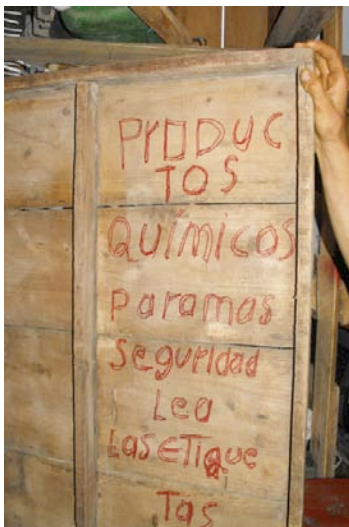 PrODUC
TOS
QUÍMICOS
paramas
seguridad
Lea
LasETIQue
Tas